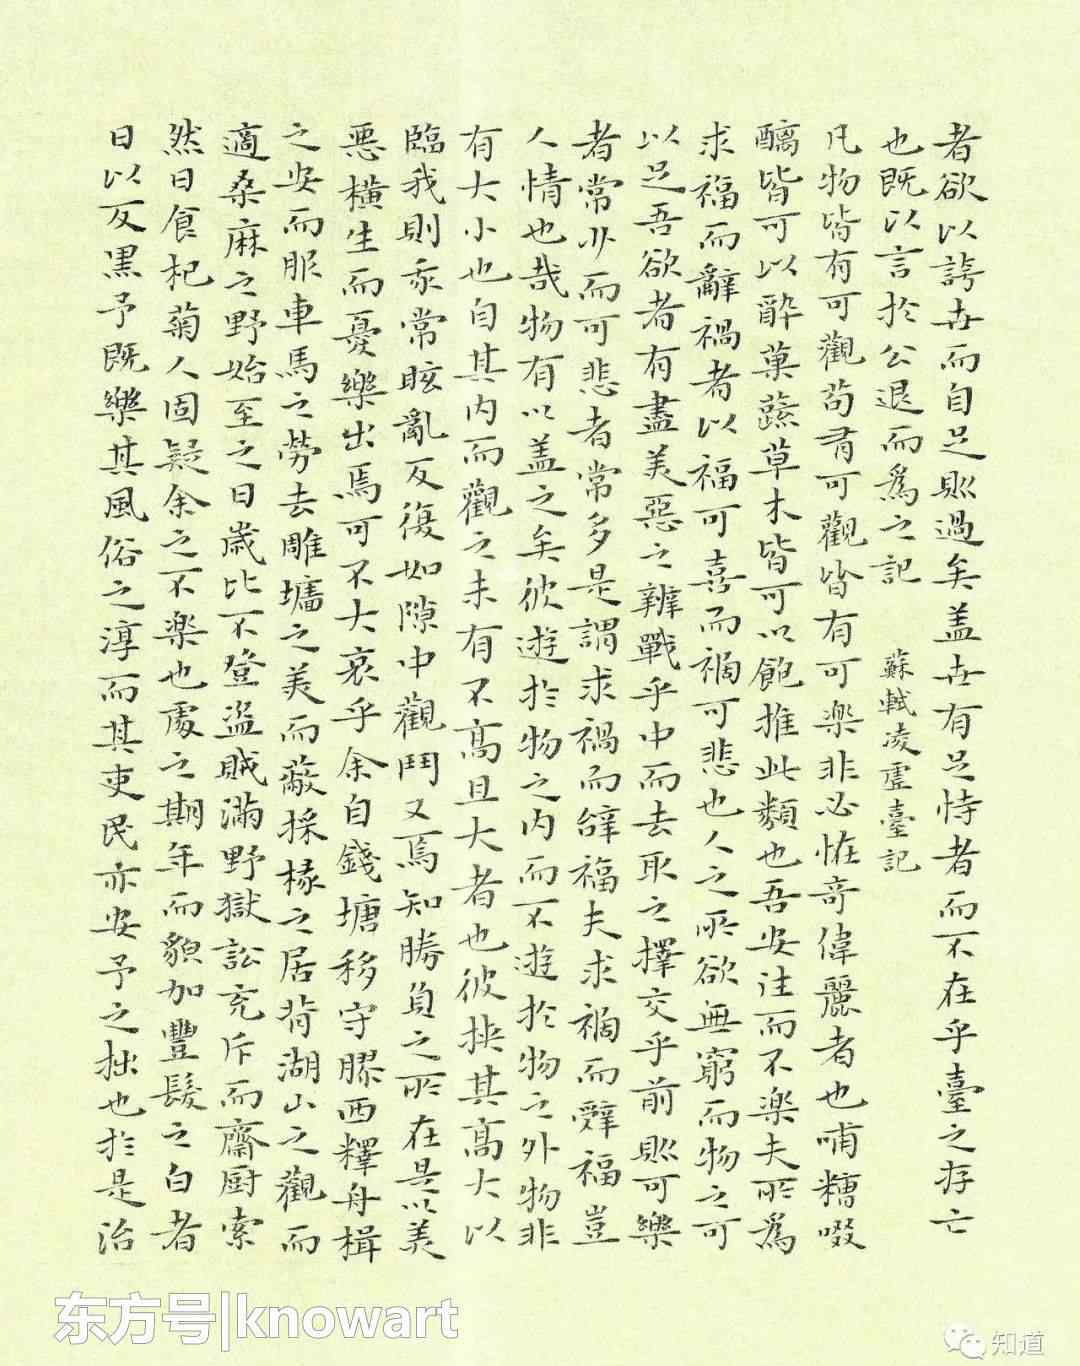 者欲以誇世而自足則過矣盖世有足恃者而不在乎臺之存亡
也既以言於公退而為之記 蘇軾凌虛臺記
凡物皆有可觀苟有可觀皆有可樂非必恠奇偉麗者也哺糟啜
醨皆可以醉菓蔬草木皆可以飽推此類也吾安往而不樂夫所為
求福而辭禍者以福可喜而禍可悲也人之所欲無窮而物之可
以足吾欲者有盡美惡之辨戰乎中而去取之擇交乎前則可樂
者常少而可悲者常多是謂求禍而辭福夫求禍而辭福豈
人情也哉物有以盖之矣彼遊於物之内而不遊於物之外物非
有大小也自其内而觀之未有不高且大者也彼挾其高大以
臨我則予常眩亂反復如隙中觀鬥又焉知勝負之所在是以美
惡橫生而憂樂出焉可不大哀乎余自錢塘移守膠西釋舟楫
之安而服車馬之勞去雕墻之美而蔽採椽之居背湖山之觀而
適桑麻之野始至之日歲比不登盜賊滿野獄訟充斥而齋厨索
然日食杞菊人固疑余之不樂也處之期年而貌加豐髮之白者
日以反黑予既樂其風俗之淳而其吏民亦安予之拙也於是治
东方号|knowart
知道